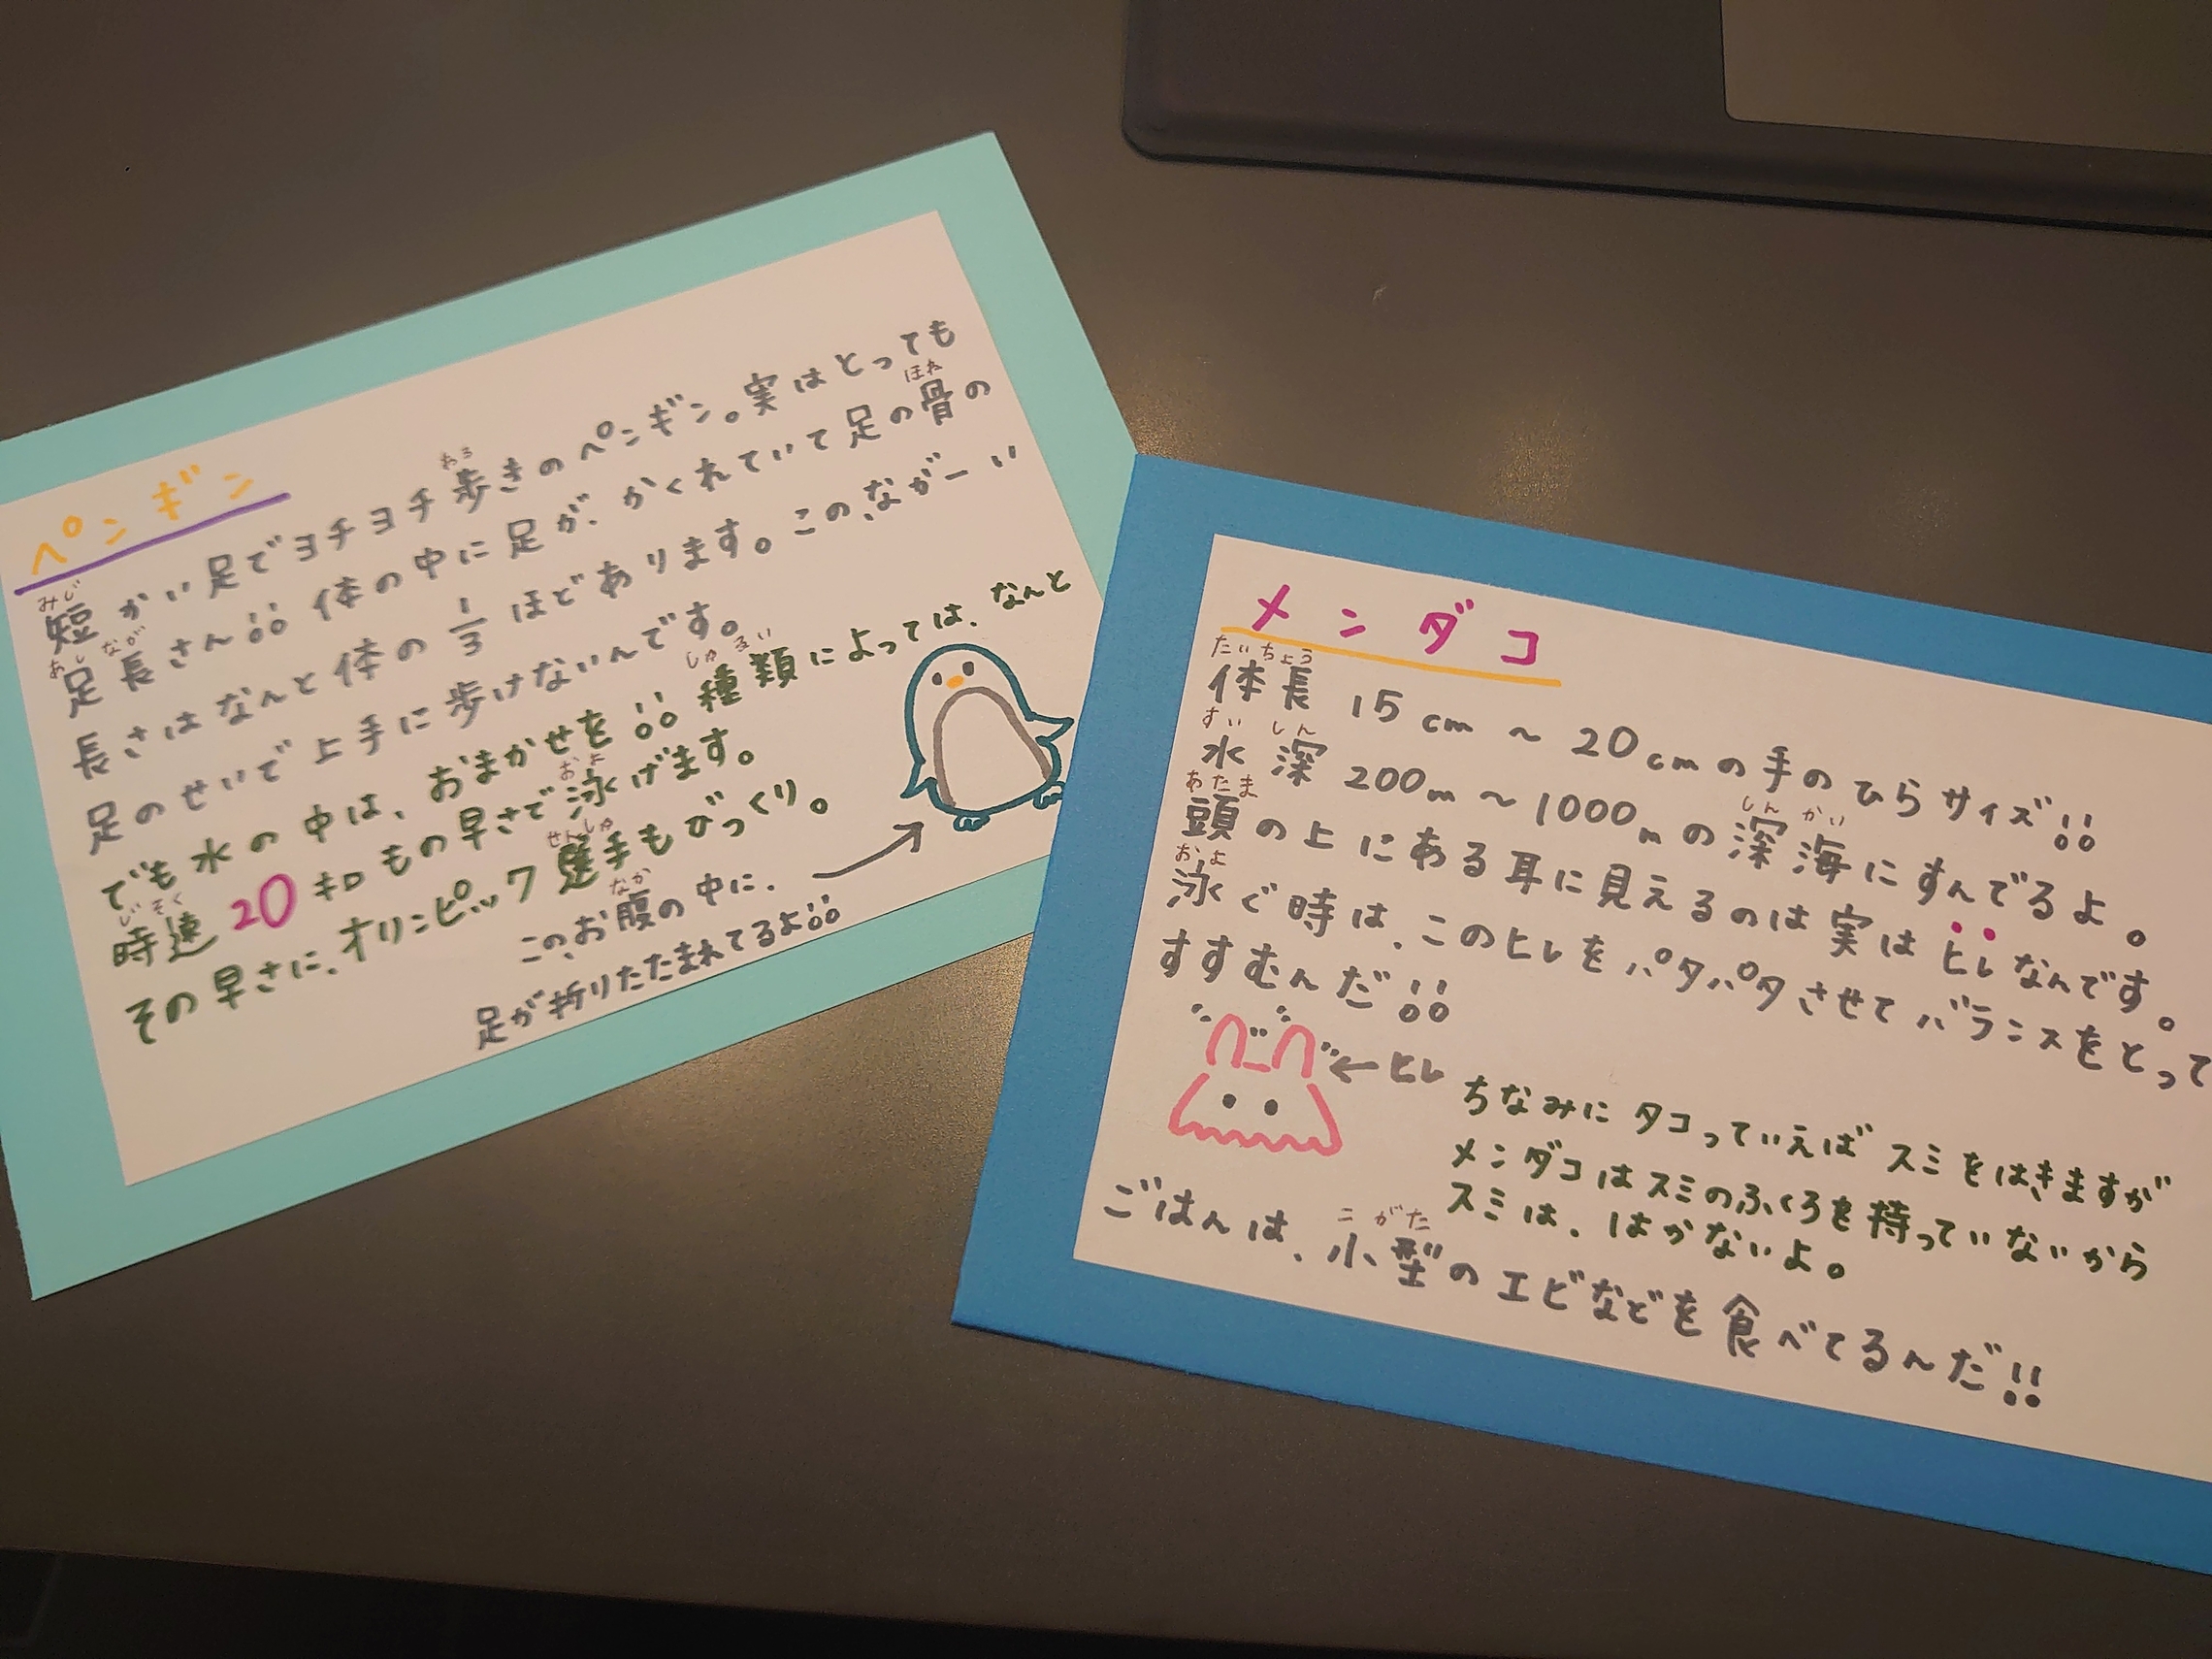 ペンギン
短かい足でヨチヨチ歩きのペンギン。実はとっても
足長さん!! 体の中に足が、かくれていて足の骨の
長さはなんと体の1/3ほどあります。この、ながーい
足のせいで上手に歩けないんです。
でも水の中は、おまかせを!! 種類によっては、なんと
時速20キロもの早さで泳げます。
その早さに、オリンピック選手もびっくり。
この、お腹の中に、
足が折りたたまれてるよ!!
メンダコ
体長 15cm～20cmの手のひらサイズ!!
水深 200m～1000mの深海にすんでるよ。
頭の上にある耳に見えるのは実はヒレなんです。
泳ぐ時は、このヒレをパタパタさせてバランスをとって
すすむんだ!!
←ヒレ
ちなみにタコっていえばスミをはきますが
メンダコはスミのふくろを持っていないから
スミは、はかないよ。
ごはんは、小型のエビなどを食べてるんだ!!